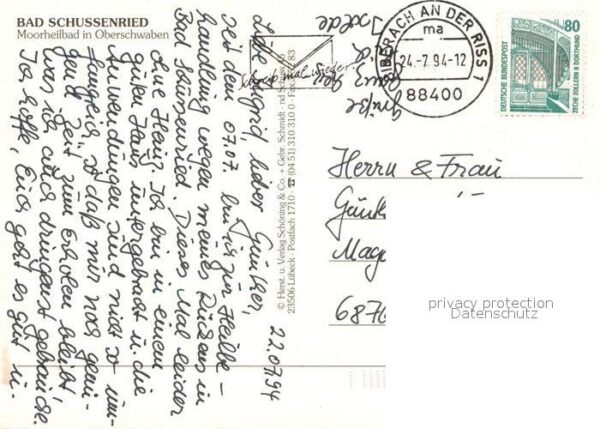 BAD SCHUSSENRIED
Moorheilbad in Oberschwaben
22.07.94
Liebe Ingrid, lieber Günther,
seit dem 07.07. bin ich zur Heilbe-
handlung wegen meines Rückens in
Bad Schussenried. Dieses Mal leider
ohne Heinz. Ich bin in einem
guten Haus untergebracht u. die
Anwendungen sind nicht so um-
fangreich, so daß mir noch genü-
gend Zeit zum Erholen bleibt,
was ich auch dringenst gebrauche.
Ich hoffe, Euch geht es gut u.
Grüße
Isolde
Schreib mal wieder
© Herst. u. Verlag Schöning & Co. + Gebr. Schmidt
23506 Lübeck · Postfach 1710 · ☎ (04 51) 310 310 0
BIBERACH AN DER RISS 1
ma
24.-7.94-12
88400
80
DEUTSCHE BUNDESPOST
ZECHE ZOLLERN II DORTMUND
Herrn & Frau
Günt
Mage
6876
privacy protection
Datenschutz